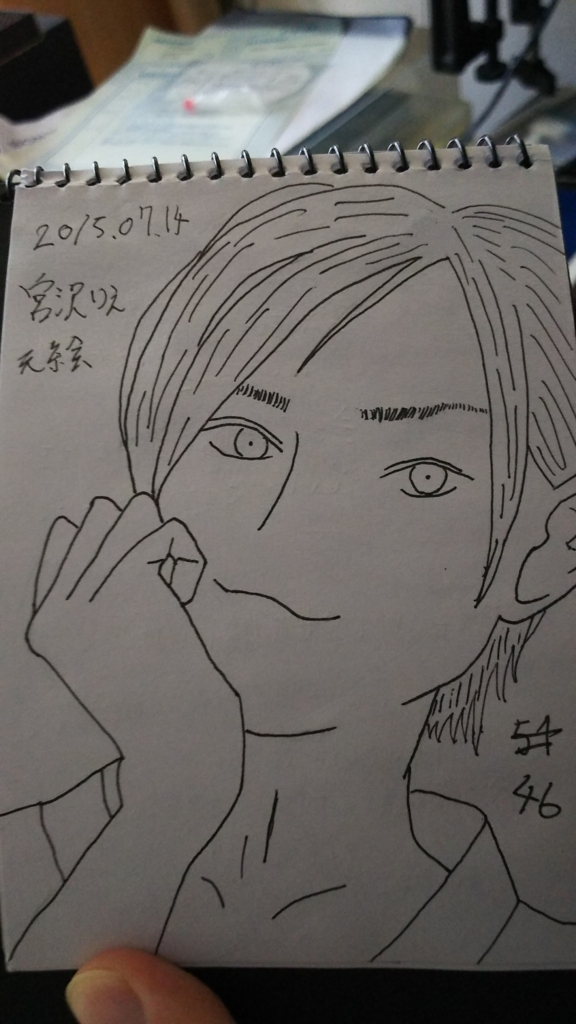 2015.07.14
宮沢りえ
元絵
54
46